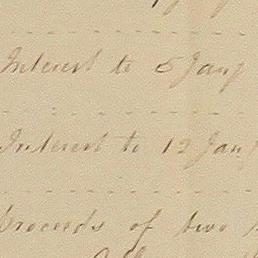 Interest to 5 Jany
Interest to 12 Jany
Proceeds of two